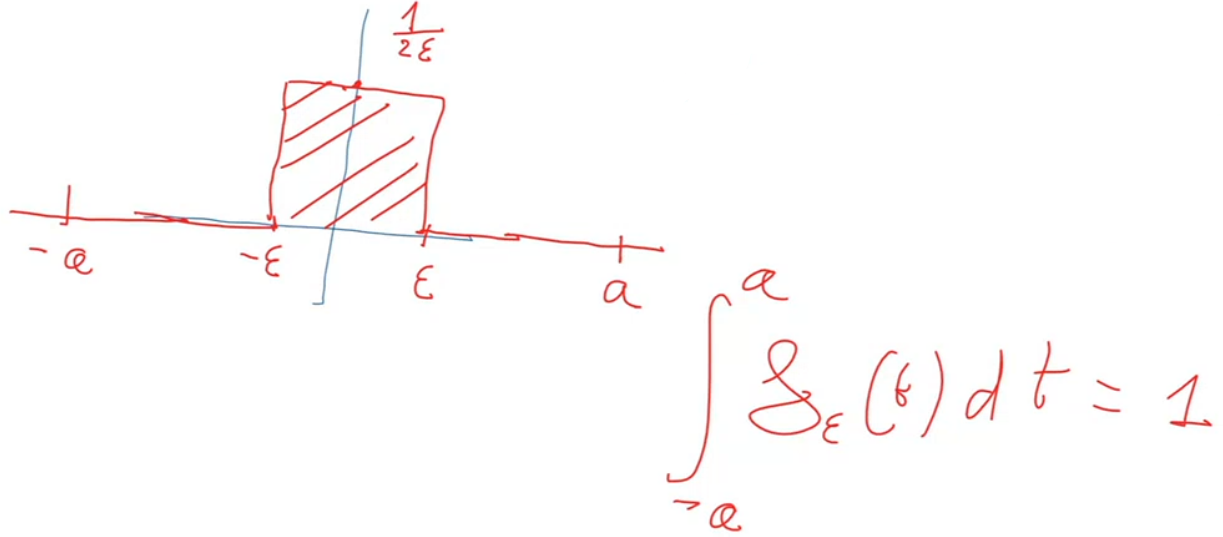 1/2ε
-a -ε ε a
∫_{-a}^{a} δ_ε(t) dt = 1